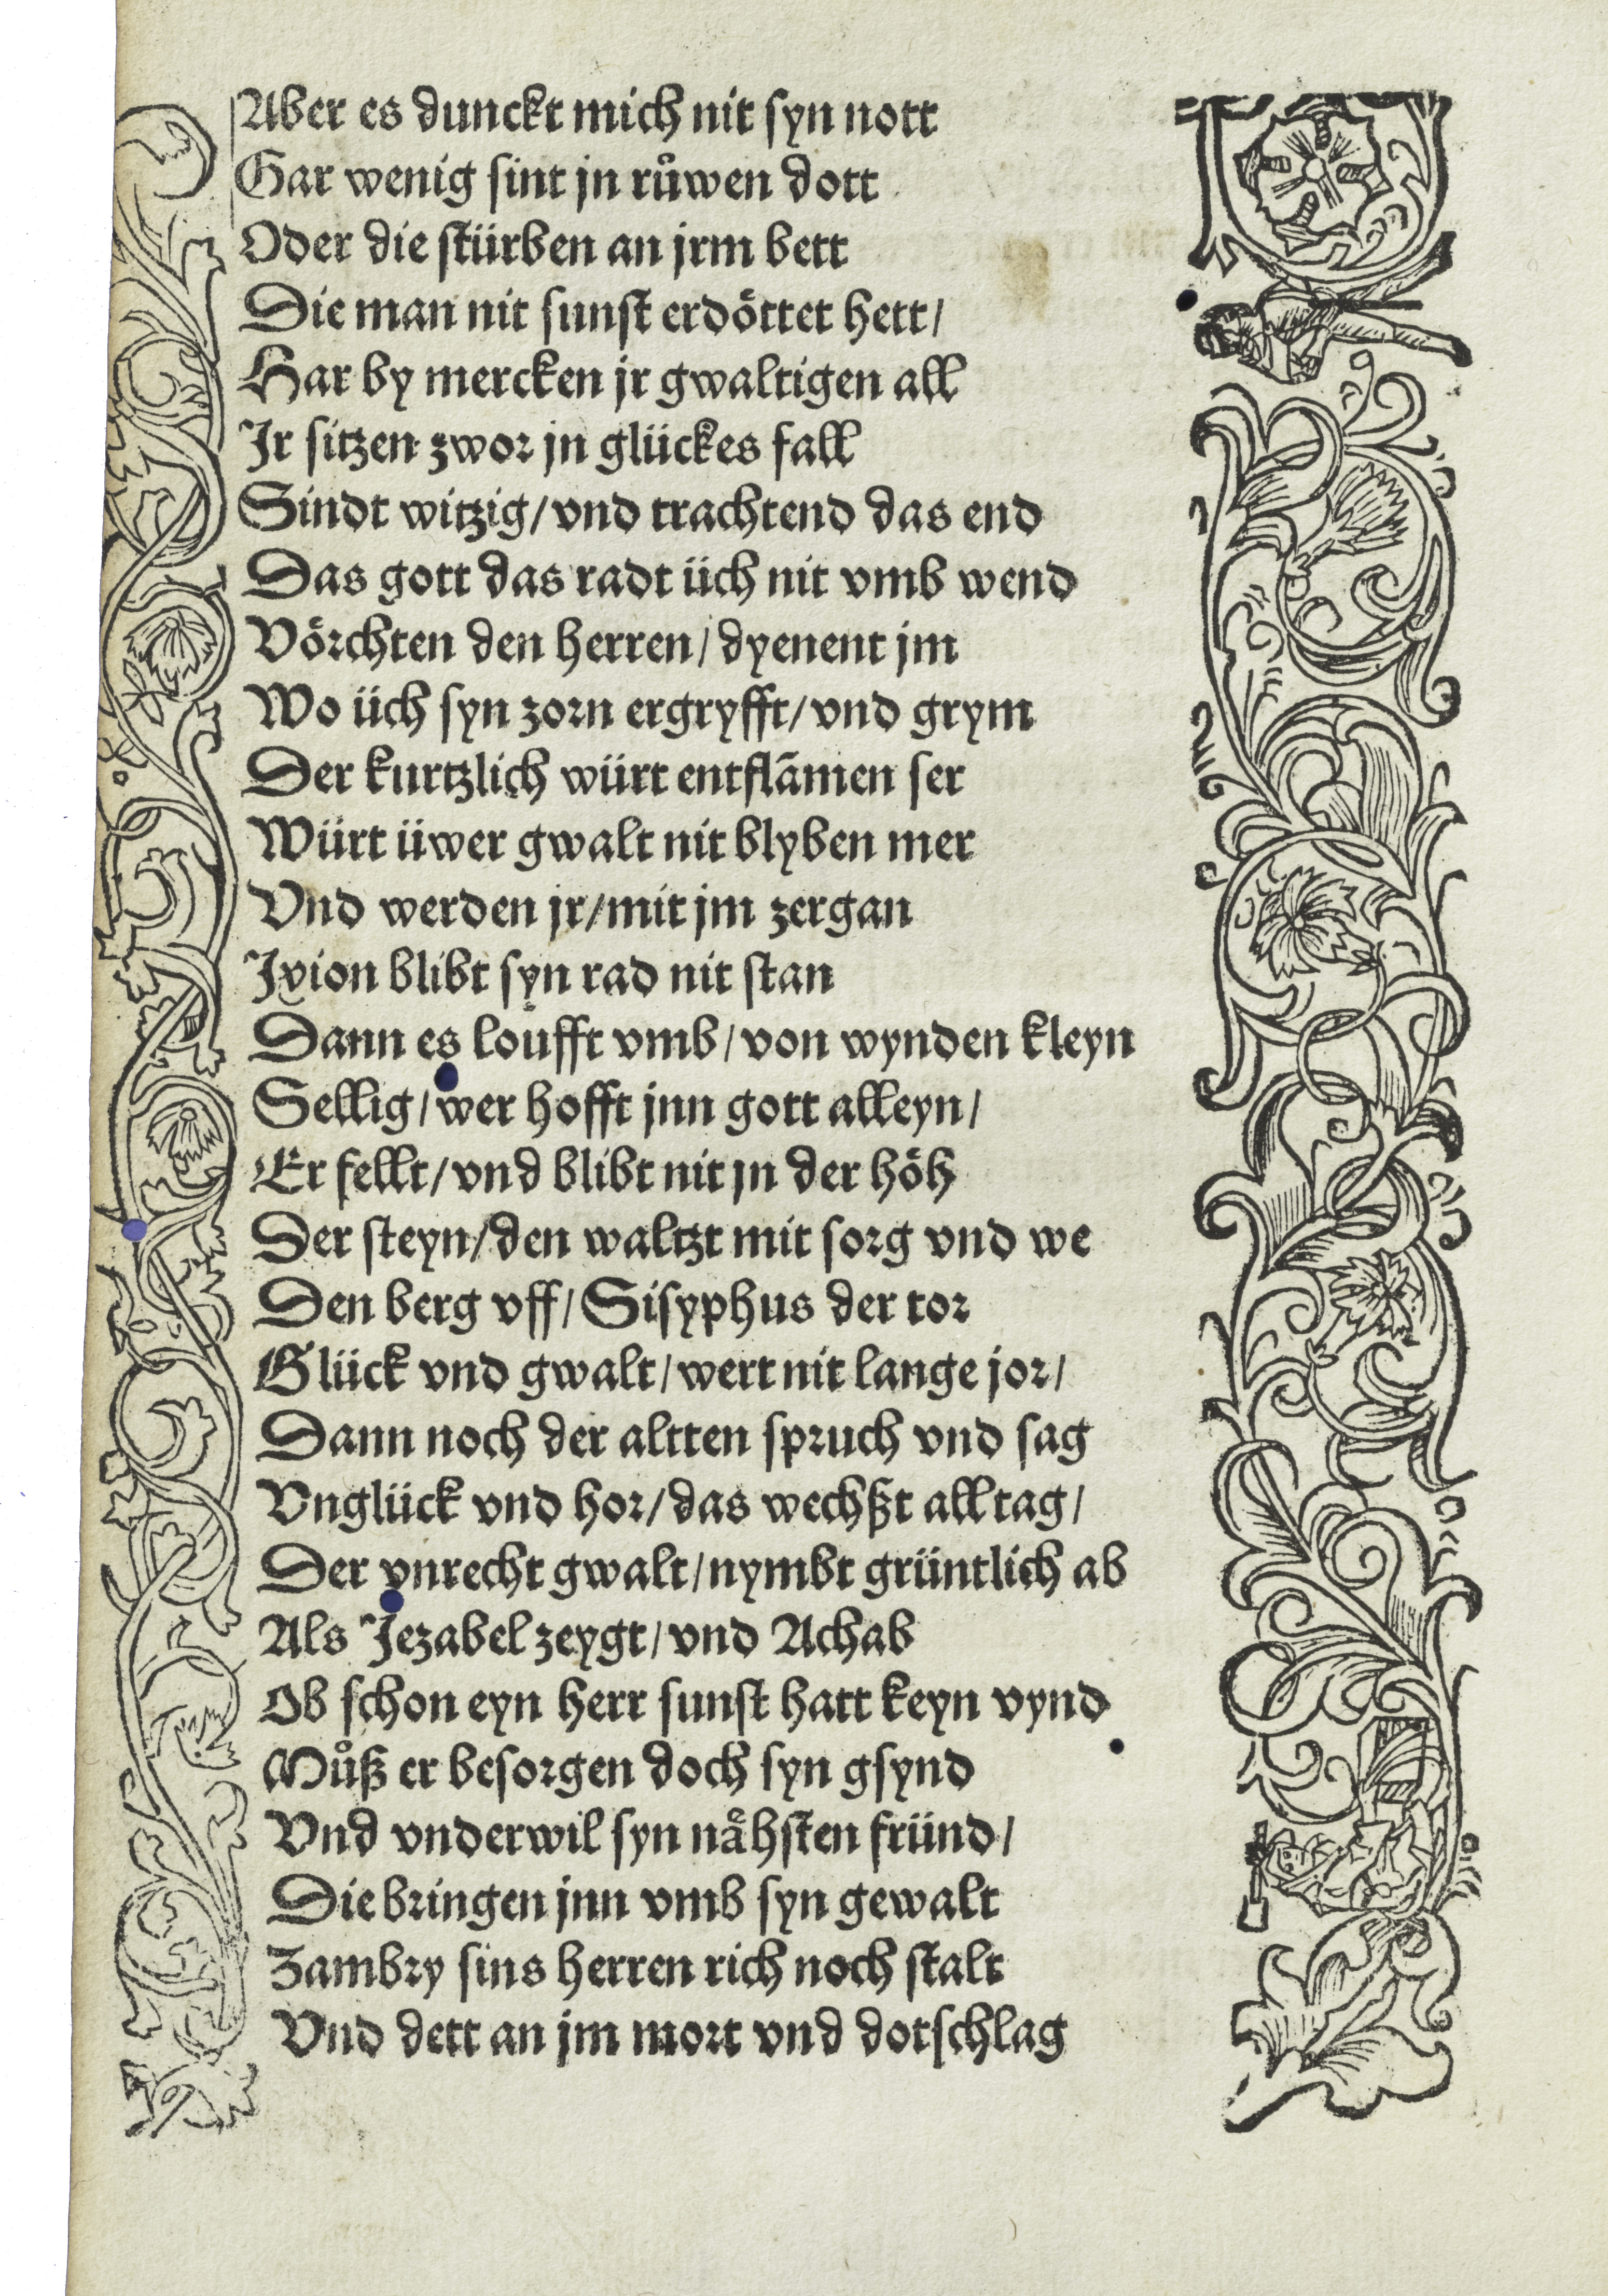 Aber es dunckt mich nit syn nott
Gar wenig sint jn růwen dott
Oder die stürben an jrm bett
Die man nit sunst erdöttet hett/
Har by mercken jr gwaltigen all
Jr sitzen zwor jn glückes fall
Sindt witzig/ vnd trachtend das end
Das gott das radt üch nit vmb wend
Vörchten den herren/ dyenent jm
Wo üch syn zorn ergryfft/ vnd grym
Der kurtzlich würt entflãmen ser
Würt üwer gwalt nit blyben mer
Vnd werden jr/ mit jm zergan
Jxion blibt syn rad nit stan
Dann es loufft vmb/ von wynden kleyn
Sellig/ wer hofft jnn gott alleyn/
Er fellt/ vnd blibt nit jn der höh
Der steyn/ den waltzt mit sorg vnd we
Den berg vff/ Sisyphus der tor
Glück vnd gwalt/ wert nit lange jor/
Dann noch der altten spruch vnd sag
Vnglück vnd hor/ das wechßt all tag/
Der vnrecht gwalt/ nymbt grüntlich ab
Als Jezabel zeygt/ vnd Achab
Ob schon eyn herr sunst hatt keyn vynd
Můß er besorgen doch syn gsynd
Vnd vnderwil syn nähsten fründ/
Die bringen jnn vmb syn gewalt
Zambry sins herren rich noch stalt
Vnd dett an jm mort vnd dotschlag